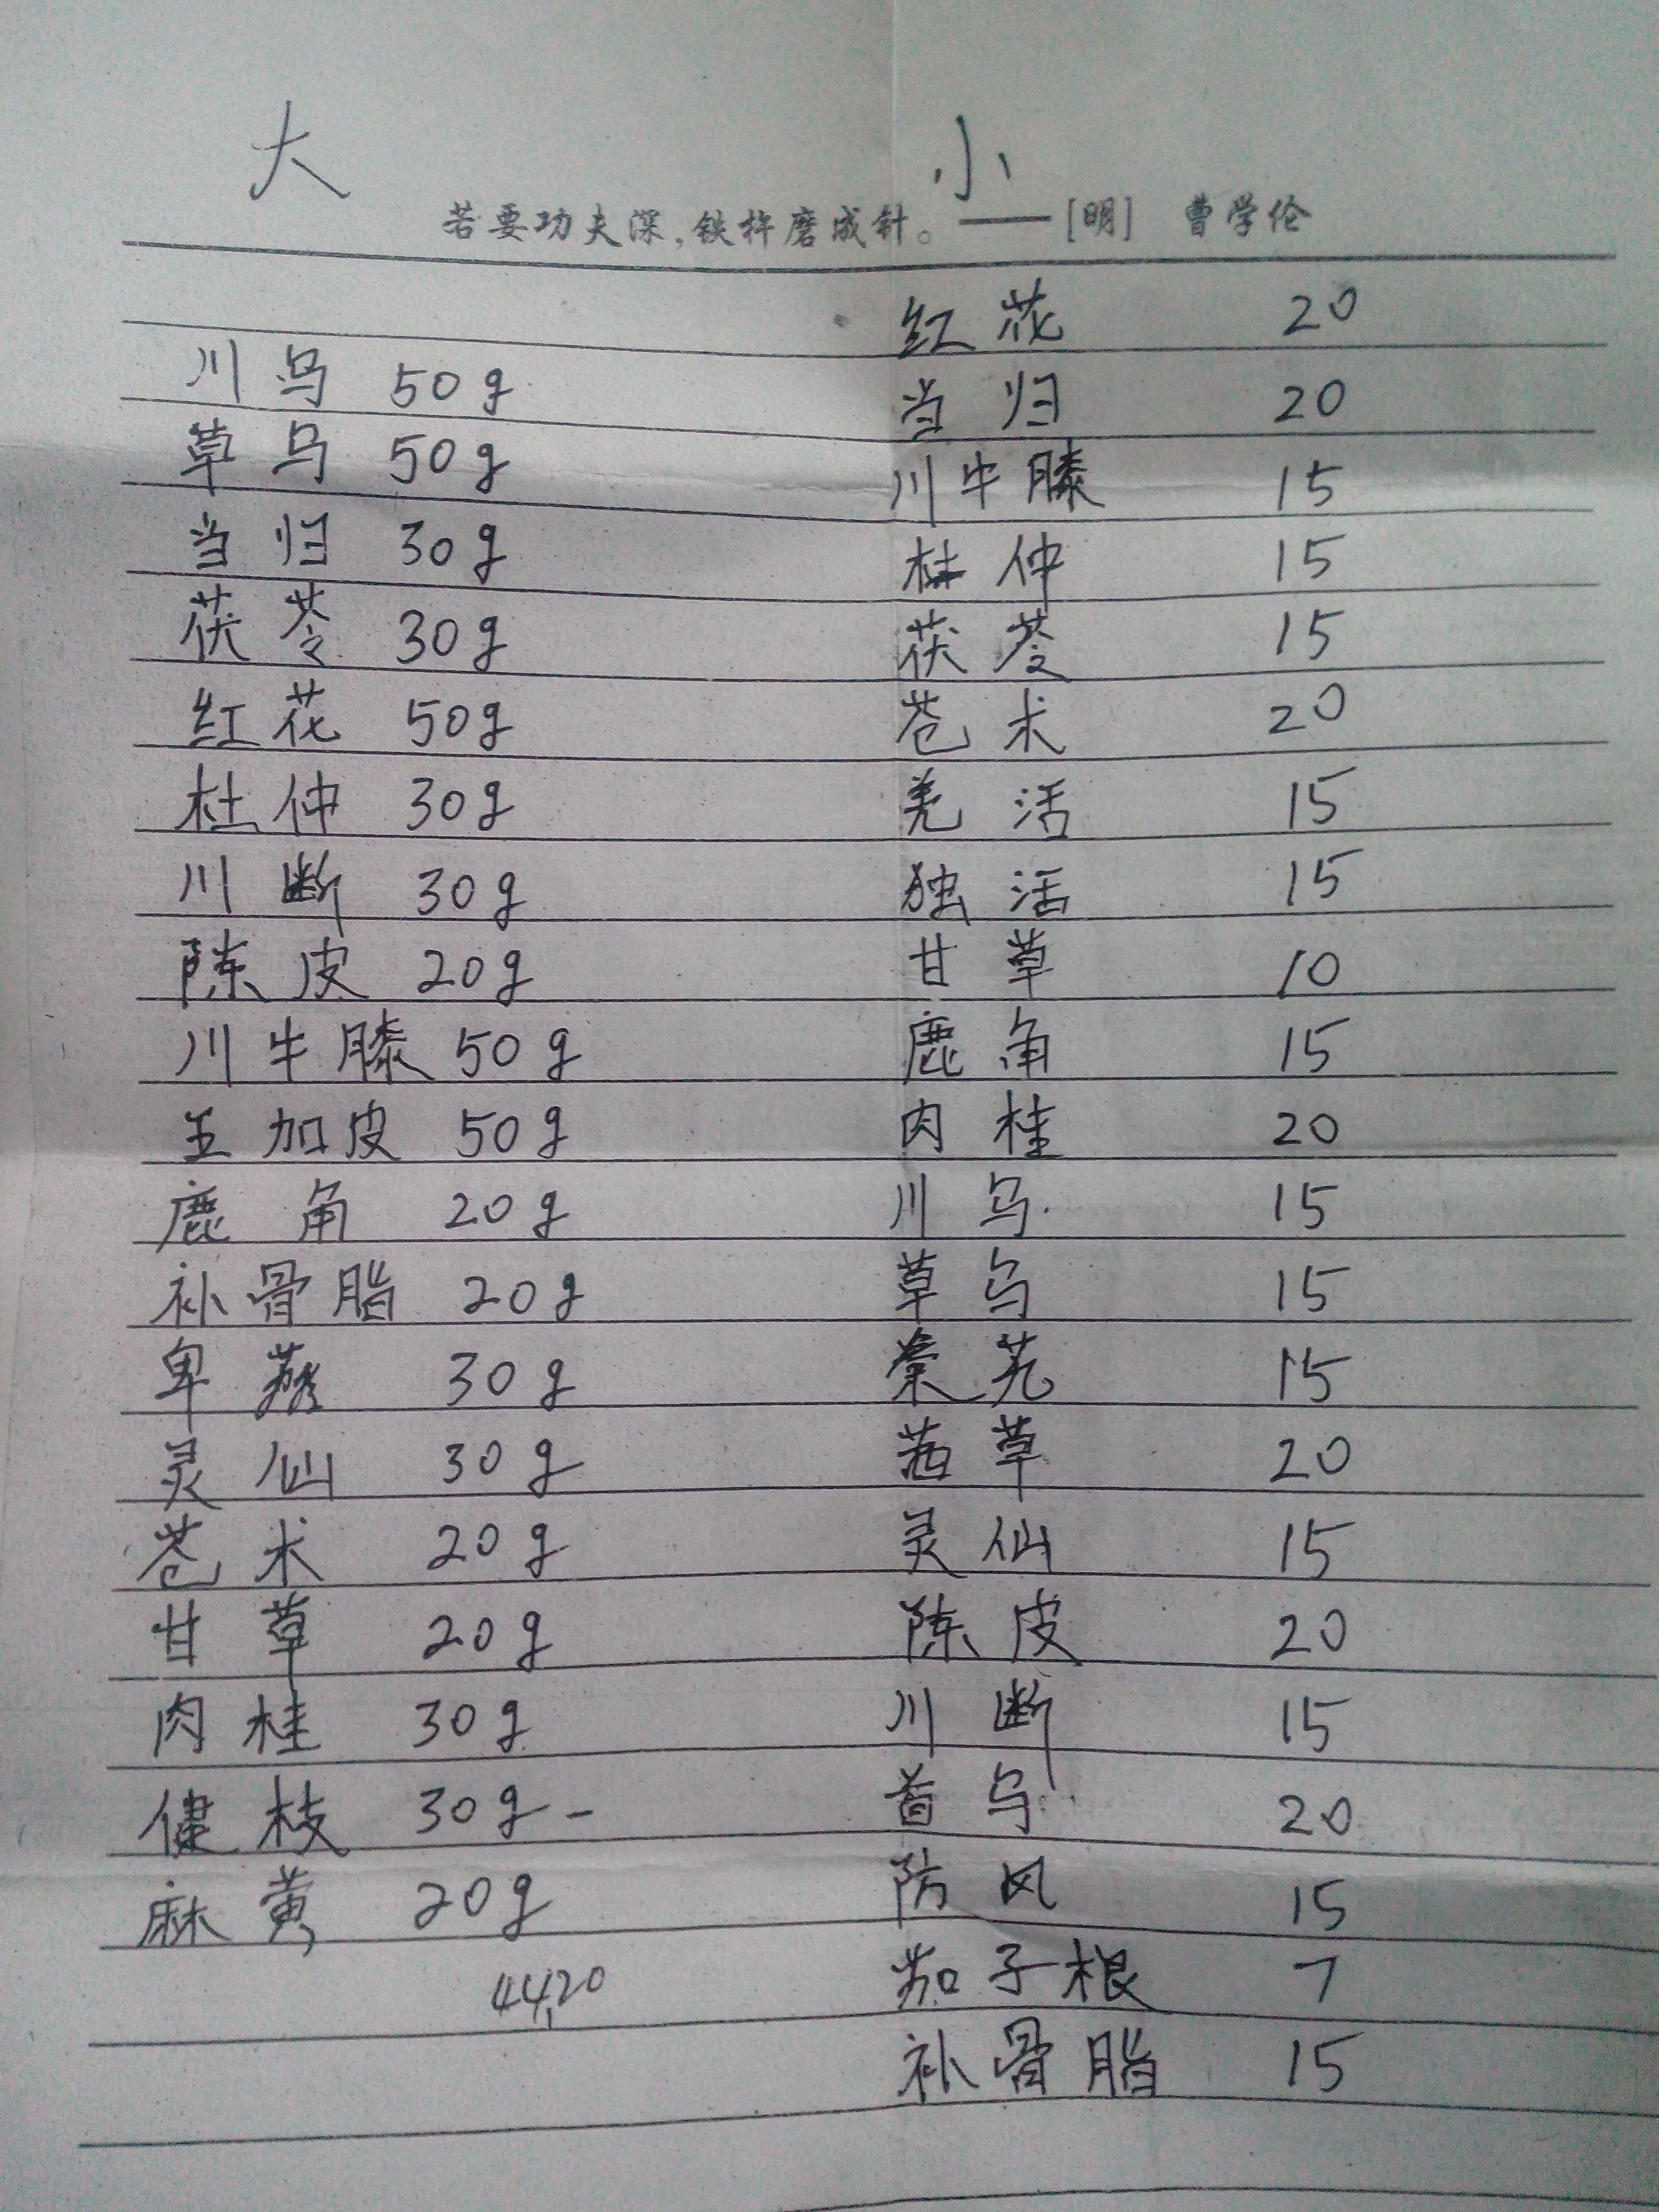 大 小
若要功夫深,铁杵磨成针。——[明] 曹学伦
红花 20
川乌 50g
当归 20
草乌 50g
川牛膝 15
当归 30g
杜仲 15
茯苓 30g
茯苓 15
红花 50g
苍术 20
杜仲 30g
羌活 15
川断 30g
独活 15
陈皮 20g
甘草 10
川牛膝 50g
鹿角 15
五加皮 50g
肉桂 20
鹿角 20g
川乌 15
补骨脂 20g
草乌 15
30g
秦艽 15
灵仙 30g
茜草 20
苍术 20g
灵仙 15
甘草 20g
陈皮 20
肉桂 30g
川断 15
健枝 30g-
首乌 20
麻黄 20g
防风 15
44,20
茄子根 7
补骨脂 15